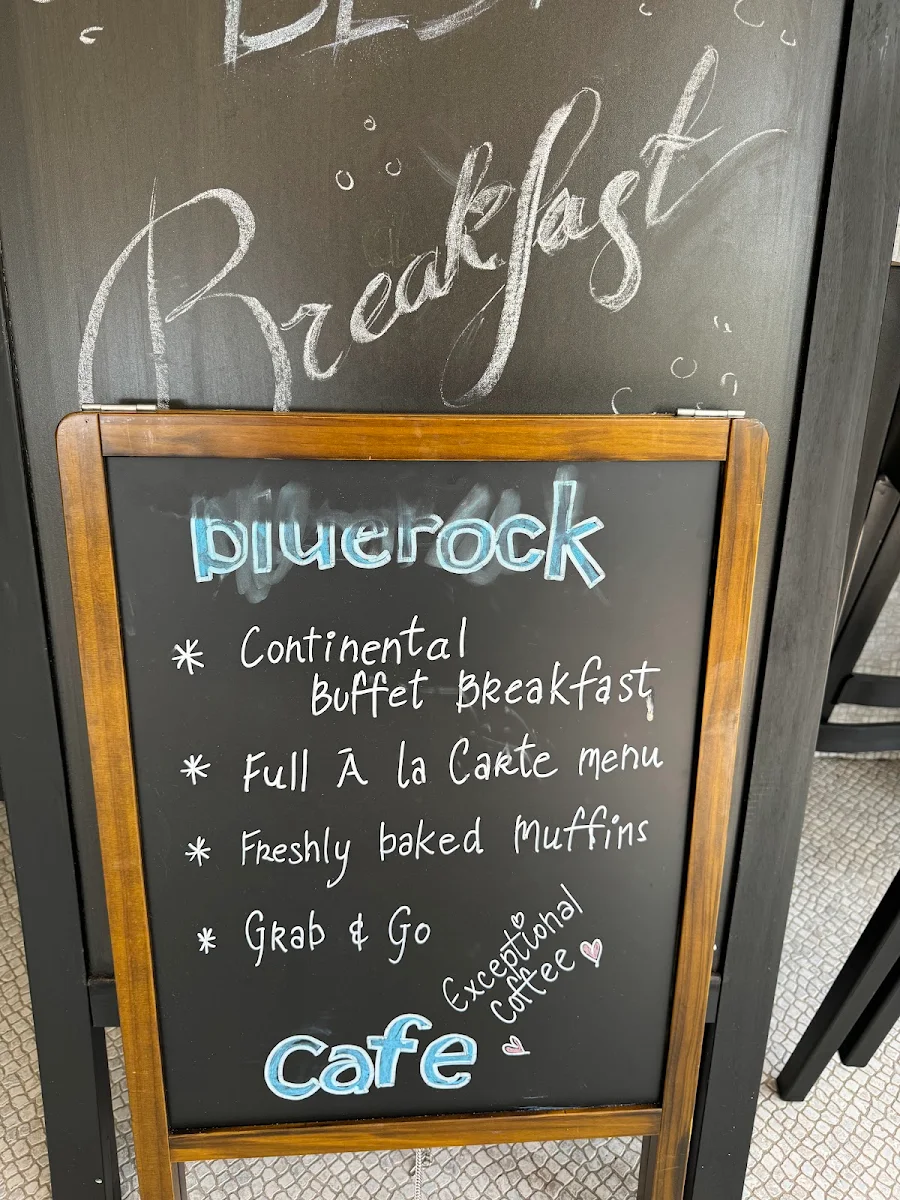 Breakfast
bluerock
* Continental
Buffet Breakfast
* Full À la Carte menu
* Freshly baked Muffins
* Grab & Go
Exceptional
Coffee
cafe